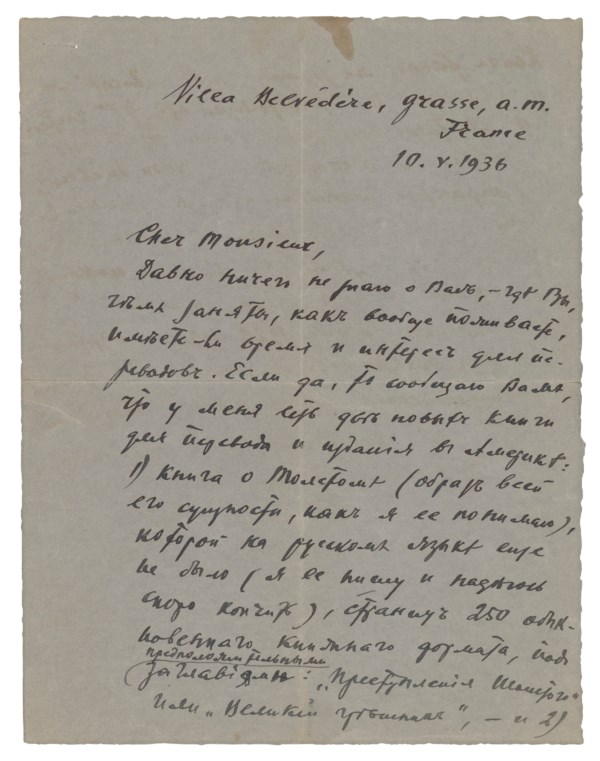 Villa Belvédère, Grasse, a.m.
France
10. V. 1936
Cher Monsieur,
Давно ничего не знаю о Васъ, – гдѣ Вы,
чѣмъ заняты, какъ вообще поживаете,
имѣете-ли время и интересъ для пе-
реводовъ. Если да, то сообщаю Вамъ,
что у меня есть двѣ новыхъ книги
для перевода и изданія въ Америкѣ:
1) книга о Толстомъ (образъ всей
его сущности, какъ я ее понимаю),
которой на русскомъ языкѣ еще
не было (я ее пишу и надѣюсь
скоро кончить), страницъ 250 обык-
новеннаго книжнаго формата, подъ
предположительными
заглавіями: „Преступленія Толстого"
или „Великій", – и 2)